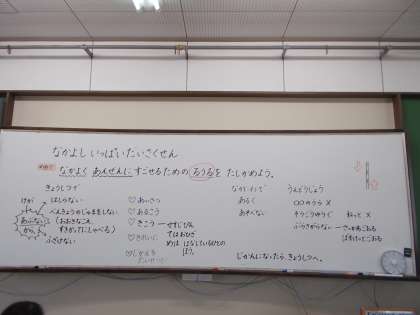 なかよし いっぱい だいさくせん
めあて なかよく あんぜんに すごせるための るうるを たしかめよう。
きょうしつで
はしらない
べんきょうのじゃまをしない
(おおきなこえ
すきかってにしゃべる)
ふざけない
けが
あぶない
から
♡あいさつ
♡あるこう
♡きこう
せすじぴん
てはおひざ
めは はなしているひとの
ほう。
♡きれいに
♡じかんを
あるく
あそべない
うんどうじょう
〇〇のうら ×
そうこうゆうで
ねっと ×
ぶらさがらない
サッカーごおる
ばすけっとごおる
じかんになったら、きょうしつへ。